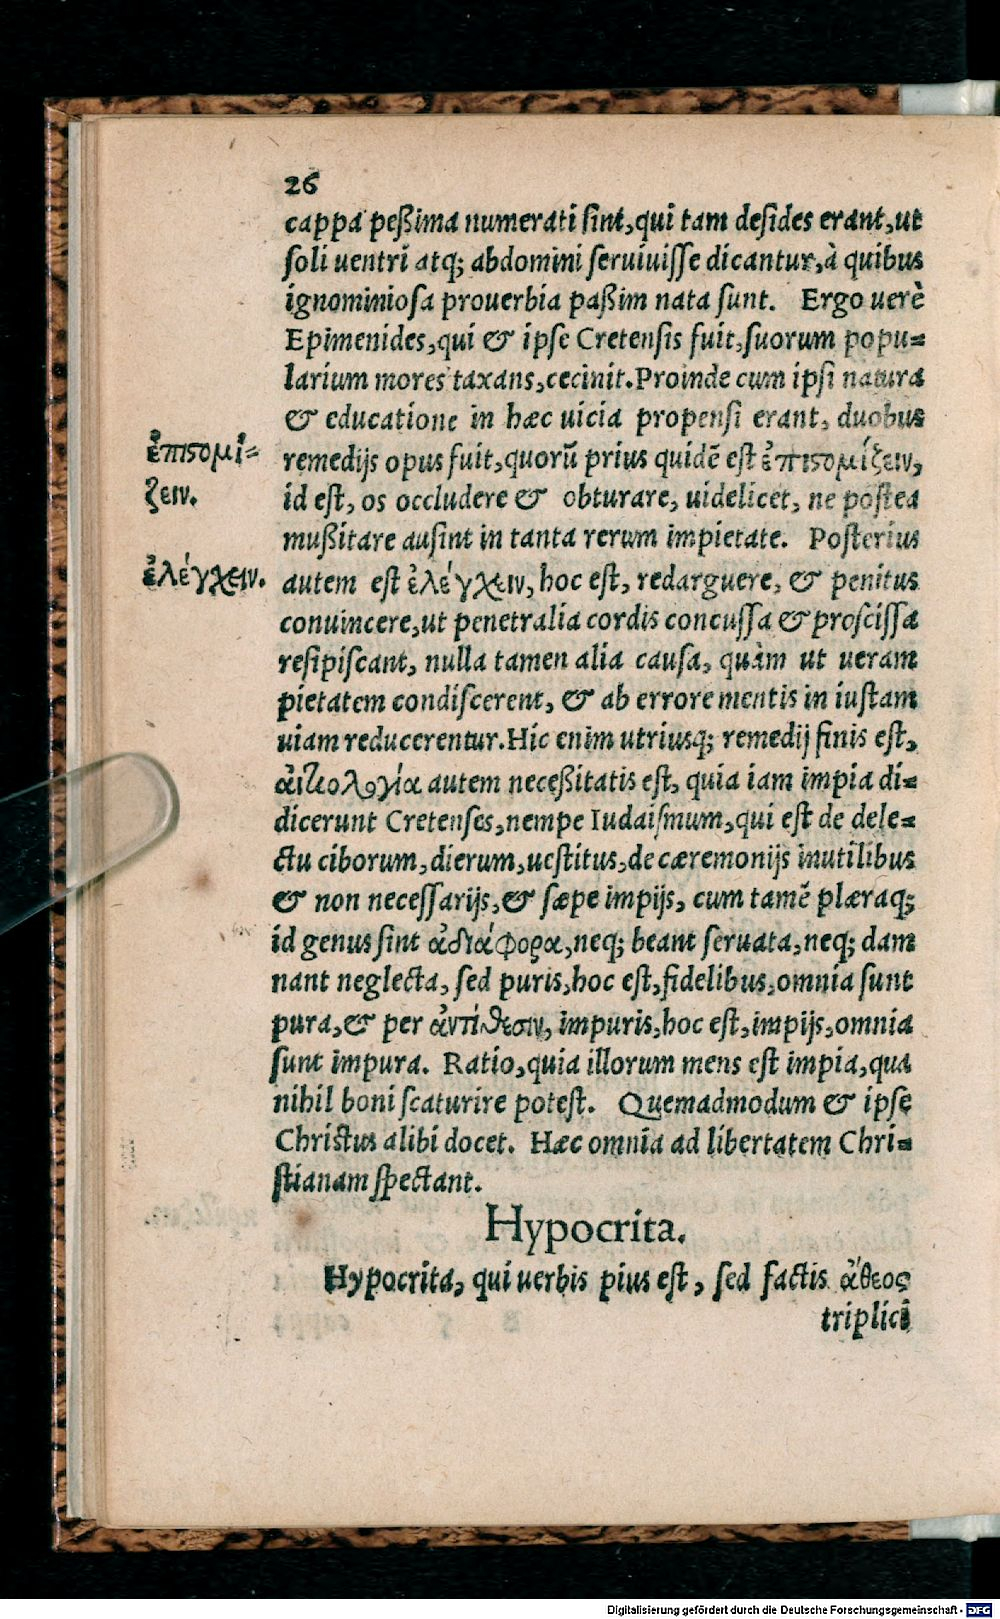 26
cappa peßima numerati sint, qui tam desides erant, ut
soli uentri atq; abdomini seruiuisse dicantur, à quibus
ignominiosa prouerbia paßim nata sunt. Ergo uerè
Epimenides, qui & ipse Cretensis fuit, suorum popu=
larium mores taxans, cecinit. Proinde cum ipsi natura
& educatione in hæc uicia propensi erant, duobus
ἐπιστομί=
ζειν.
remedijs opus fuit, quorũ prius quidẽ est ἐπιστομίζειν,
id est, os occludere & obturare, uidelicet, ne postea
mußitare ausint in tanta rerum impietate. Posterius
ἐλέγχειν.
autem est ἐλέγχειν, hoc est, redarguere, & penitus
conuincere, ut penetralia cordis concussa & proscissa
resipiscant, nulla tamen alia causa, quàm ut ueram
pietatem condiscerent, & ab errore mentis in iustam
uiam reducerentur. Hic enim utriusq; remedij finis est,
ἀιτιολογία autem neceßitatis est, quia iam impia di=
dicerunt Cretenses, nempe Iudaismum, qui est de dele=
ctu ciborum, dierum, uestitus, de cæremonijs inutilibus
& non necessarijs, & sæpe impijs, cum tamẽ plæraq;
id genus sint ἀδιάφορα, neq; beant seruata, neq; dam
nant neglecta, sed puris, hoc est, fidelibus, omnia sunt
pura, & per ἀντίθεσιν, impuris, hoc est, impijs, omnia
sunt impura. Ratio, quia illorum mens est impia, qua
nihil boni scaturire potest. Quemadmodum & ipse
Christus alibi docet. Hæc omnia ad libertatem Chri=
stianam spectant.
Hypocrita.
Hypocrita, qui uerbis pius est, sed factis ἄθεος
triplici
Digitalisierung gefördert durch die Deutsche Forschungsgemeinschaft - DFG